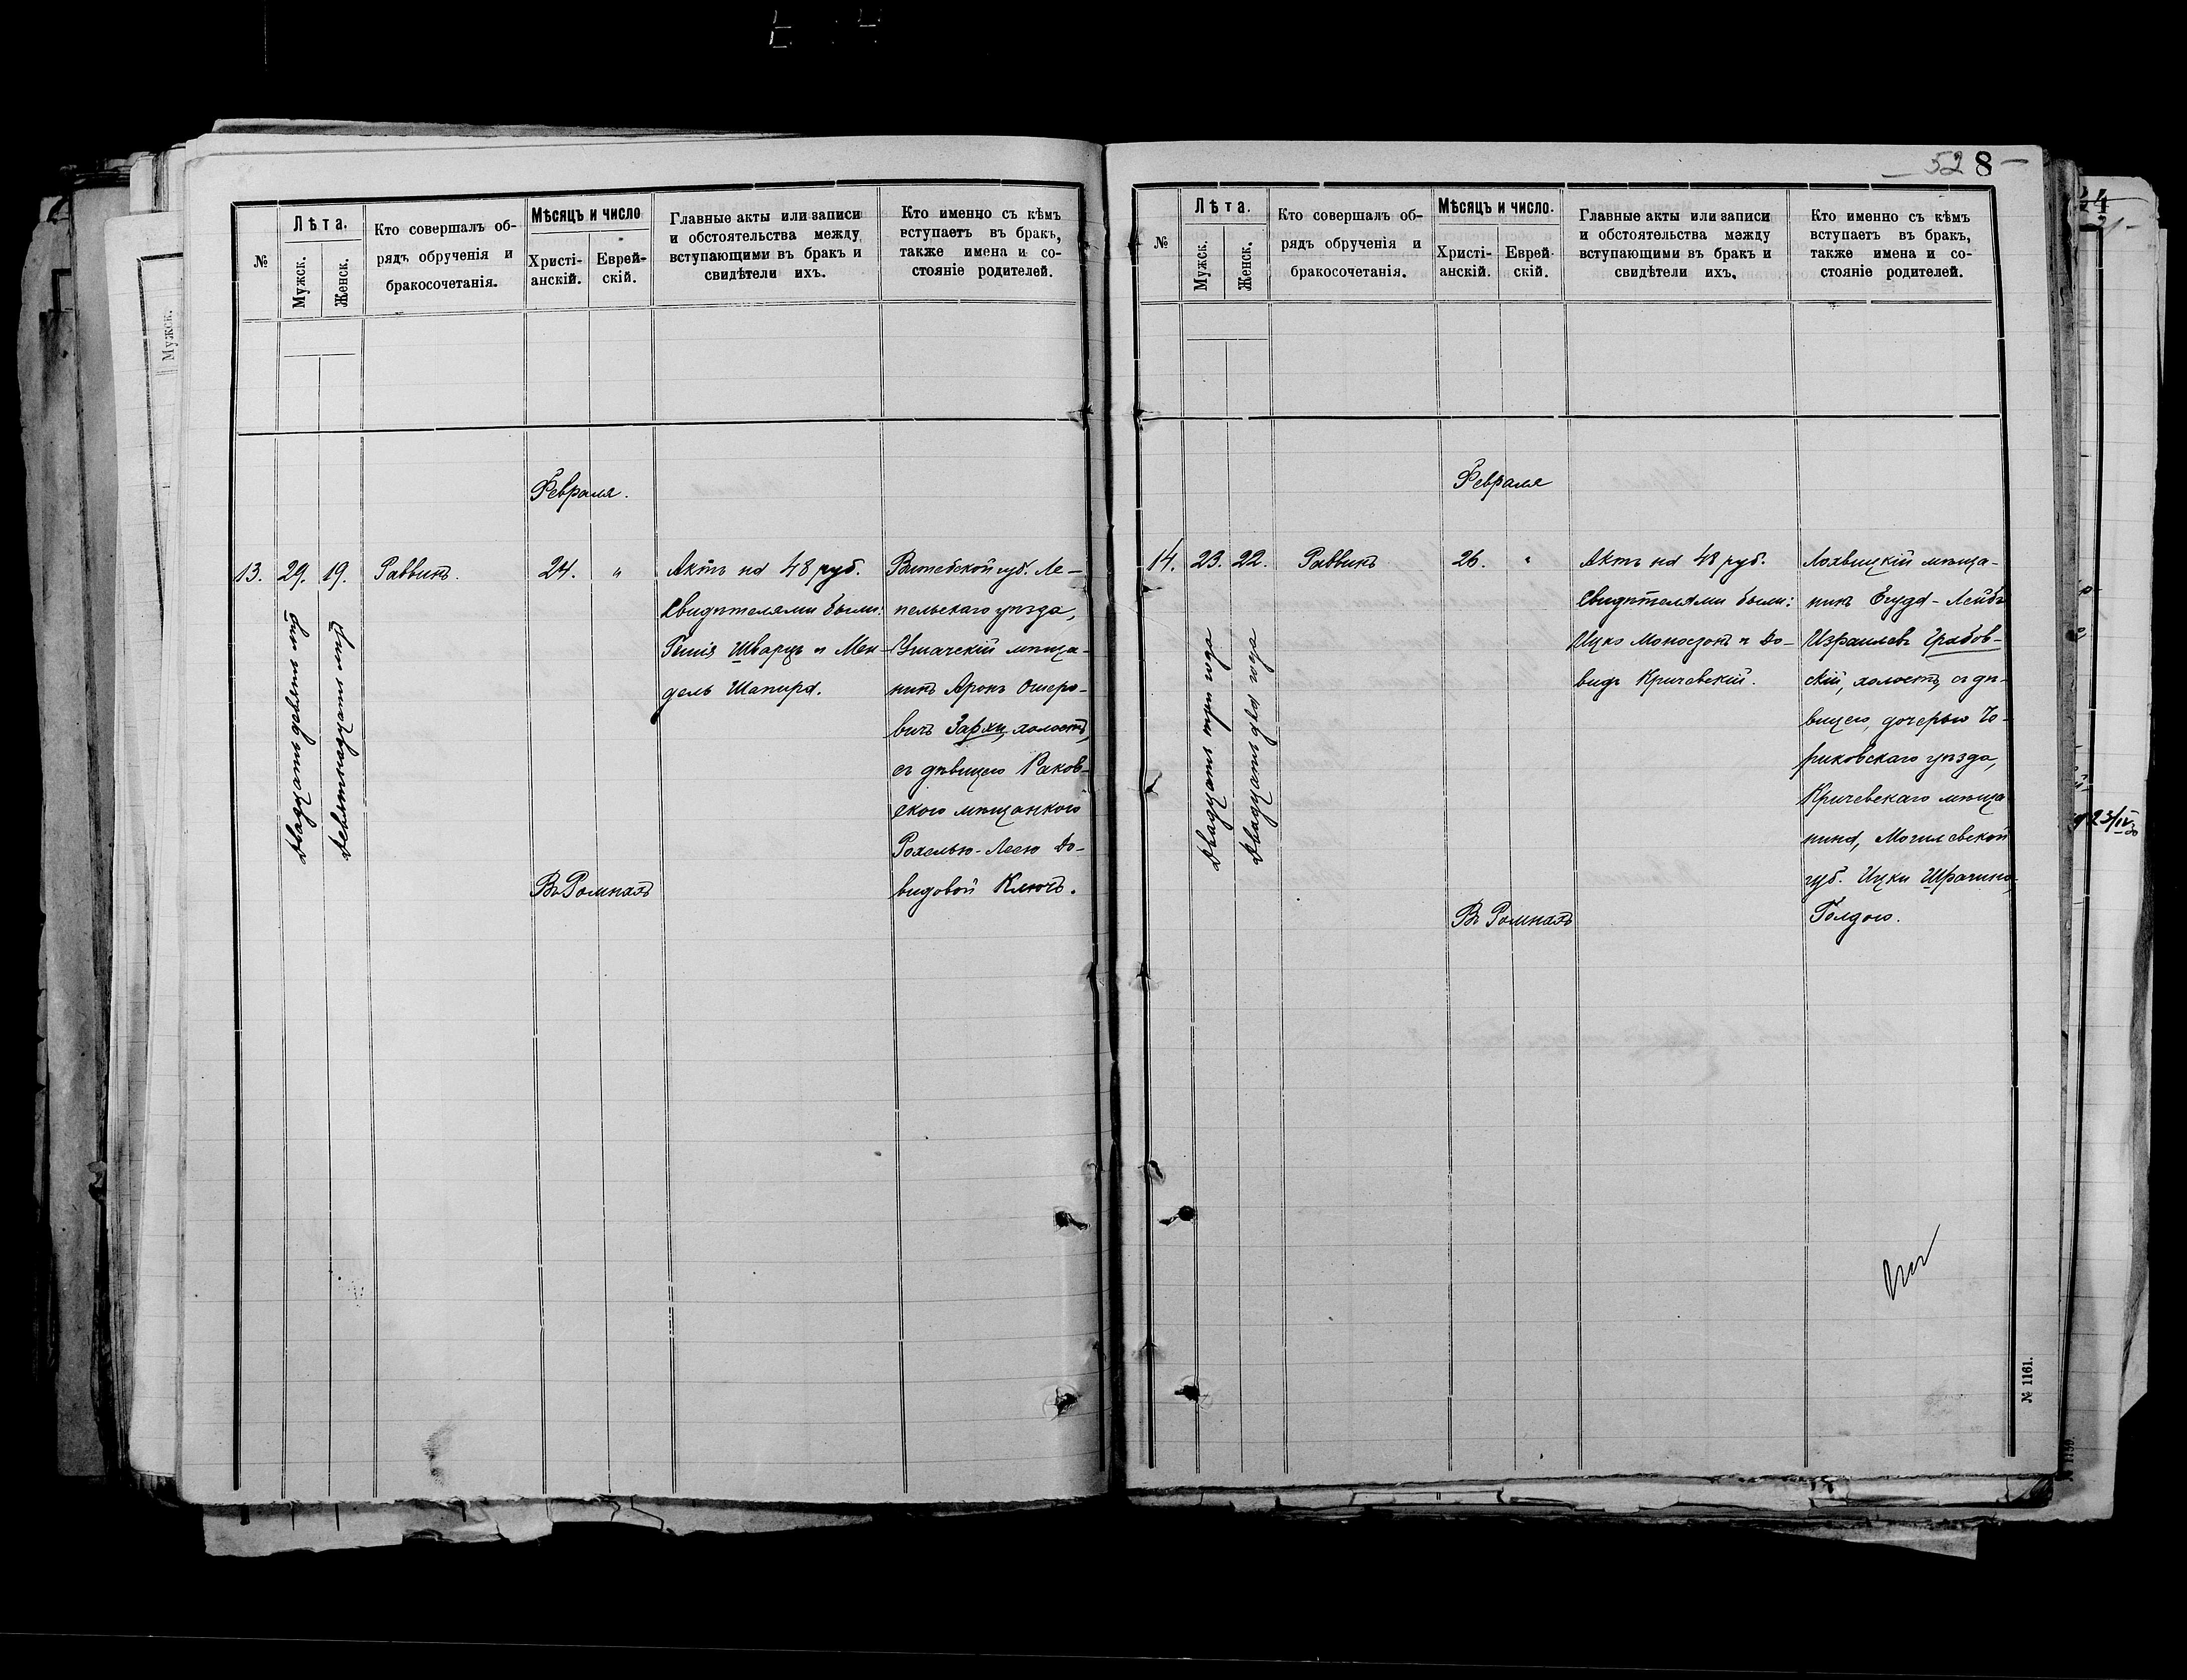 52 8
№
Лѣта.
Мужск.
Женск.
Кто совершалъ об-
рядъ обрученія и
бракосочетанія.
Мѣсяцъ и число
Христі-
анскій.
Еврей-
скій.
Главные акты или записи
и обстоятельства между
вступающими въ бракъ и
свидѣтели ихъ.
Кто именно съ кѣмъ
вступаетъ въ бракъ,
также имена и со-
стояніе родителей.
Февраля.
13. 29. 19. Раввинъ. 24. "
Двадцать девять лѣтъ
Девятнадцать лѣтъ
Актъ на 48 руб.
Свидѣтелями были:
Гешія Шварцъ и Мен-
дель Шапира.
Витебской губ. Ле-
пельскаго уѣзда,
Ушачскій мѣща-
нинъ Аронъ Ошеро-
вичъ Зархи, холостъ,
съ дѣвицею Раков-
скою мѣщанкою
Рохелью-Леею До-
видовой Ключъ.
Въ Ромнахъ
№
Лѣта.
Мужск.
Женск.
Кто совершалъ об-
рядъ обрученія и
бракосочетанія.
Мѣсяцъ и число.
Христі-
анскій.
Еврей-
скій.
Главные акты или записи
и обстоятельства между
вступающими въ бракъ и
свидѣтели ихъ.
Кто именно съ кѣмъ
вступаетъ въ бракъ,
также имена и со-
стояніе родителей.
Февраля
14. 23. 22. Раввинъ 26. "
Двадцать три года
Двадцать два года
Актъ на 48 руб.
Свидѣтелями были:
Ицко Моносзонъ и До-
видъ Кричевскій.
Лохвицкій мѣща-
нинъ Егуда-Лейбъ
Израилевъ Грабов-
скій, холостъ, съ дѣ-
вицею, дочерью Че-
риковскаго уѣзда,
Кричевскаго мѣща
нина, Могилевской
губ. Ицки Шрагина,
Голдою.
Въ Ромнахъ
№ 1161.
Мужск.